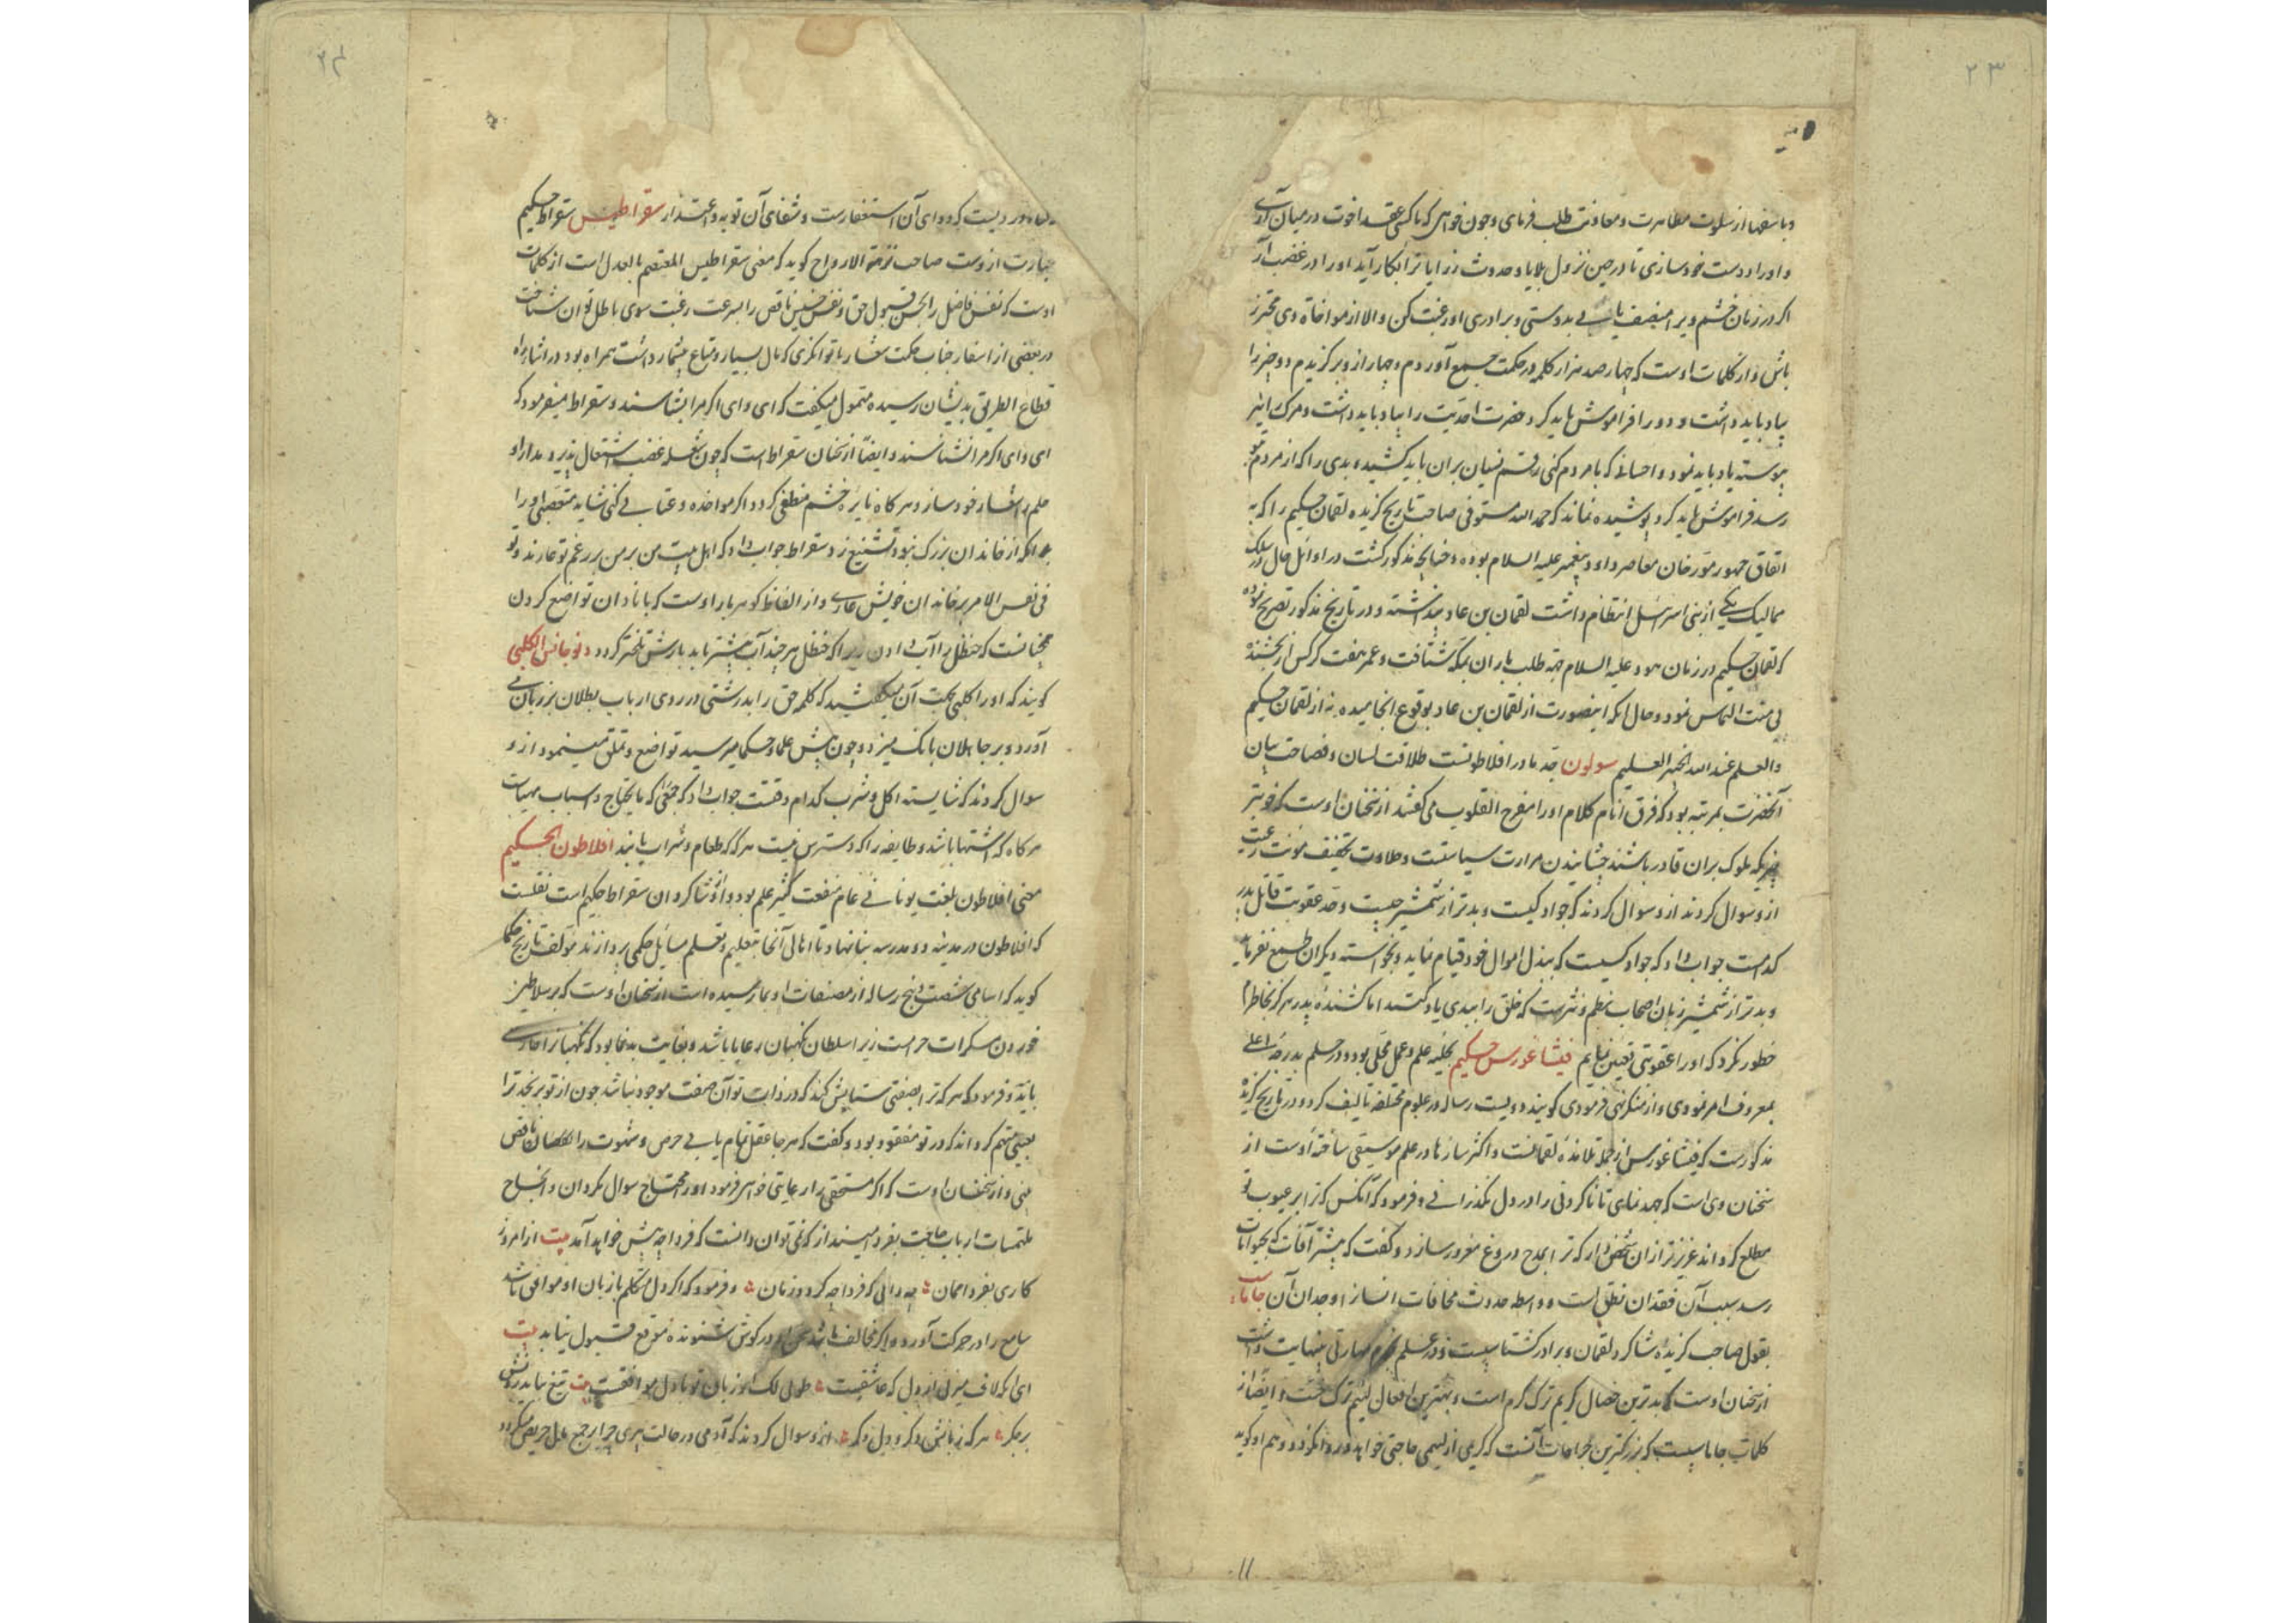 ۲۳
و با سفها از سلوت مظاهرت و معاونت طلب فرمای و چون خواهی که با کسی عقد اخوت در میان آری
و او را دوست خود سازی تا در حین نزول بلایا و حدوث رزایا ترا بکار آید او را در غضب آر
اگر در زمان خشم ویرا منصف یابی بدوستی و برادری او رغبت کن و الا از مواخاة وی محترز
باش و از کلمات اوست که چهار صد هزار کلمه در حکمت جمع آوردم و چهار از و برگزیدم دو چیز را
بیاد باید داشت و دو را فراموش باید کرد حضرت احدیت را بیاد باید داشت و مرگ را نیز
پیوسته یاد باید نمود و احسانی که با مردم کنی رقم نسیان بران باید کشید و بدی را که از مردم بتو
رسد فراموش باید کرد پوشیده نماند که حمد الله مستوفی صاحب تاریخ گزیده لقمان حکیم را که به
اتفاق جمهور مورخان معاصر داود پیغمبر علیه السلام بوده و چنانچه مذکور گشت در اوائل حال در سلک
ممالیک یکی از بنی اسرائیل انتظام داشت لقمان بن عاد پنداشته و در تاریخ مذکور تصریح نموده
که لقمان حکیم در زمان هود علیه السلام جهة طلب باران بمکه شتافت و عمر هفت کرکس از بخشنده
بی منت التماس نمود و حال آنکه اینصورت از لقمان بن عاد بوقوع انجامیده نه از لقمان حکیم
والعلم عند الله الخبیر العلیم سولون جد مادر افلاطونست طلاقت لسان و فصاحت بیان
آنحضرت بمرتبه بود که فرق انام کلام او را مفرح القلوب می گفتند از سخنان اوست که خوبتر
چیزیکه ملوک بران قادر باشند چشانیدن مرارت سیاستست و حلاوت تخفیف مؤنت رعیت
از و سوال کردند که جواد کیست و بدتر از شمشیر چیست و حد عقوبت قاتل پدر
کدامست جواب داد که جواد کسیست که ببذل اموال خود قیام نماید و بخواسته دیگران طمع نفرماید
و بدتر از شمشیر زبان اصحاب نظم و نثرست که خلق را ببدی یاد کنند اما کشندهٔ پدر هرگز بخاطرم
خطور نکرد که او را عقوبتی تعیین نمایم فیثاغورس حکیم بحلیه علم و عمل محلی بود و در حلم بدرجه اعلی
بمعروف امر نمودی و از منکر نهی فرمودی گویند دویست رساله در علوم مختلفه تالیف کرد و در تاریخ گزیده
مذکورست که فیثاغورس از جمله تلامذهٔ لقمانست و اکثر سازها در علم موسیقی ساخته اوست از
سخنان وی است که جهد نمای تا ناکردنی را در دل نگذرانی و فرمود که آنکس که ترا بر عیوب تو
مطلع گرداند عزیزتر از ان شخص دار که ترا بمدح دروغ مغرور سازد و گفت که بیشتر آفات که بحیوانات
رسد بسبب آن فقدان نطق است و واسطه حدوث مخافات انسان را وجدان آن جاماسب
بقول صاحب گزیده شاگرد لقمان و برادر گشتاسپست و در علم نجوم مهارتی بینهایت داشت
از سخنان اوست که بدترین خصال کریم ترک کرم است و بهترین افعال لئیم ترک خست و ایضا از
کلمات جاماسپست که بزرگترین جراحات آنست که کریمی از لئیمی حاجتی خواهد و روا نکردد و هم او گوید
۱۱
۲۴
گناه دردیست که دوای آن استغفارست و شفای آن توبه و اعتذار سقراطیس سقراط حکیم
عبارت ازوست صاحب نزهة الارواح گوید که معنی سقراطیس المعتصم بالعدل است از کلمات
اوست که نفس فاضل را بحسن قبول حق و نفس خسیس ناقص را بسرعت رغبت سوی باطل توان شناخت
در بعضی از اسفار جناب حکمت شعار با توانگری که مال بسیار و متاع بیشمار داشت همراه بود در اثناء راه
قطاع الطریق بدیشان رسیده متمول میگفت که ای وای اگر مرا بشناسند و سقراط میفرمود که
ای وای اگر مرا نشناسند و ایضا از سخنان سقراط است که چون شعله غضب اشتعال پذیرد مدارا و
حلم را شعار خود ساز و هرگاه نایرهٔ خشم منطفی گردد اگر مواخذه و عتابی کنی شاید متعصبی او را
بآنکه از خاندان بزرگ نبود تشنیع زد سقراط جواب داد که اهل بیت من بر من بر زعم تو عارند و تو
فی نفس الامر بر خاندان خویش عاری و از الفاظ گوهربار اوست که با نادان تواضع کردن
همچنانست که حنظل را آب دادن زیرا که حنظل هرچند آب بیشتر یابد بارش تلختر گردد دیوجانس الکلبی
گویند که او را کلبی بجهت آن میگفتند که کلمه حق را بدرشتی در روی ارباب بطلان بر زبان می
آورد و بر جاهلان بانگ میزد و چون پیش علما و حکما میرسید تواضع و تملق مینمود از و
سوال کردند که شایسته اکل و شرب کدام وقتست جواب داد که جمعی را که مایحتاج و اسباب مهیاست
هر گاه که اشتها باشد و طایفه را که دسترس نیست هرگه که طعام و شراب یابند افلاطون الحکیم
معنی افلاطون بلغت یونانی عام منفعت کثیر علم بود و او از شاگردان سقراط حکیم است نقلست
که افلاطون در مدینه دو مدرسه بنا نهاد تا اهالی آنجا بتعلیم و تعلم مسائل حکمی پردازند مؤلف تاریخ حکما
گوید که اسامی شصت و پنج رساله از مصنفات او بما رسیده است از سخنان اوست که بر سلاطین
خوردن مسکرات حرامست زیرا سلطان نگهبان رعایا باشد و بغایت بدنما بود که نگهبان را حارسی
باید و فرمود که هر که ترا بصفتی ستایش کند که در ذات تو آن صفت موجود نباشد چون از تو برنجد ترا
بعیبی متهم گرداند که در تو مفقود بود و گفت که هر جا عقل تمام یابی حرص و شهوت را ناقص
بینی و از سخنان اوست که اگر مستحقی را رعایتی خواهی فرمود او را محتاج سوال مگردان و انجاح
ملتمسات ارباب حاجت بفردا میندازد که نمی توان دانست که فردا چه پیش خواهد آمد بیت از امروز
کاری بفردا ممان چه دانی که فردا چه گردد زمان و فرمود که اگر دل متکلم با زبان او موافق باشد
سامع را در حرکت آورد و اگر مخالف باشد سخن او در گوش شنونده موقع قبول نیابد بیت
ای آنکه لاف میزنی از دل که عاشقست طوبی لک ار زبان تو با دل موافقست بیت تیغ باید زدنش
بر جگر هر که زبانش دگر و دل دگر از و سوال کردند که آدمی در حالت پیری چرا بر جمع مال حریص میگردد